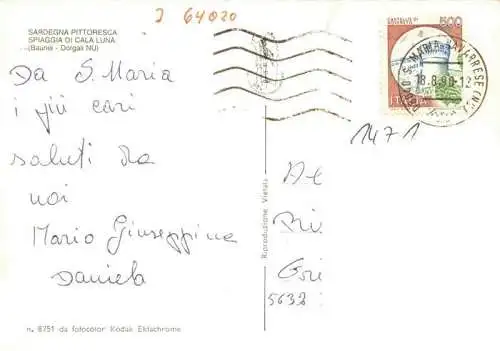 J 64020
SARDEGNA PITTORESCA
SPIAGGIA DI CALA LUNA
(Baunei - Dorgali NU)
500
18.8.90-12
ITALIA
1471
Da S. Maria
i più cari
saluti da
noi
Mario Giuseppina
Daniela
Riproduzione Vietata
5632
n. 8751 da fotocolor Kodak Ektachrome